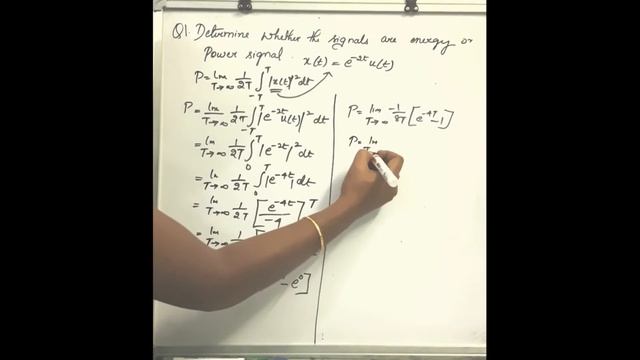 Q1. Determine whether the signals are energy or
Power signal. x(t) = e^{-2t} u(t)
P = lim_{T→∞} 1/2T ∫_{-T}^{T} |x(t)|² dt
P = lim_{T→∞} 1/2T ∫_{-T}^{T} |e^{-2t} u(t)|² dt
= lim_{T→∞} 1/2T ∫_{0}^{T} |e^{-2t}|² dt
= lim_{T→∞} 1/2T ∫_{0}^{T} |e^{-4t}| dt
= lim_{T→∞} 1/2T [e^{-4t}/-4]^{T}
= lim_{T→∞} 1
- e⁰]
P = lim_{T→∞} -1/8T [e^{-4T} - 1]
P = lim